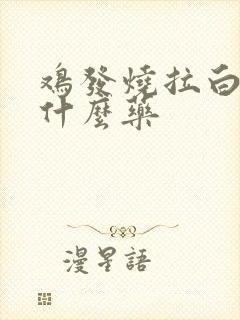 鴻發燒拉白
什麼藥
漫星語